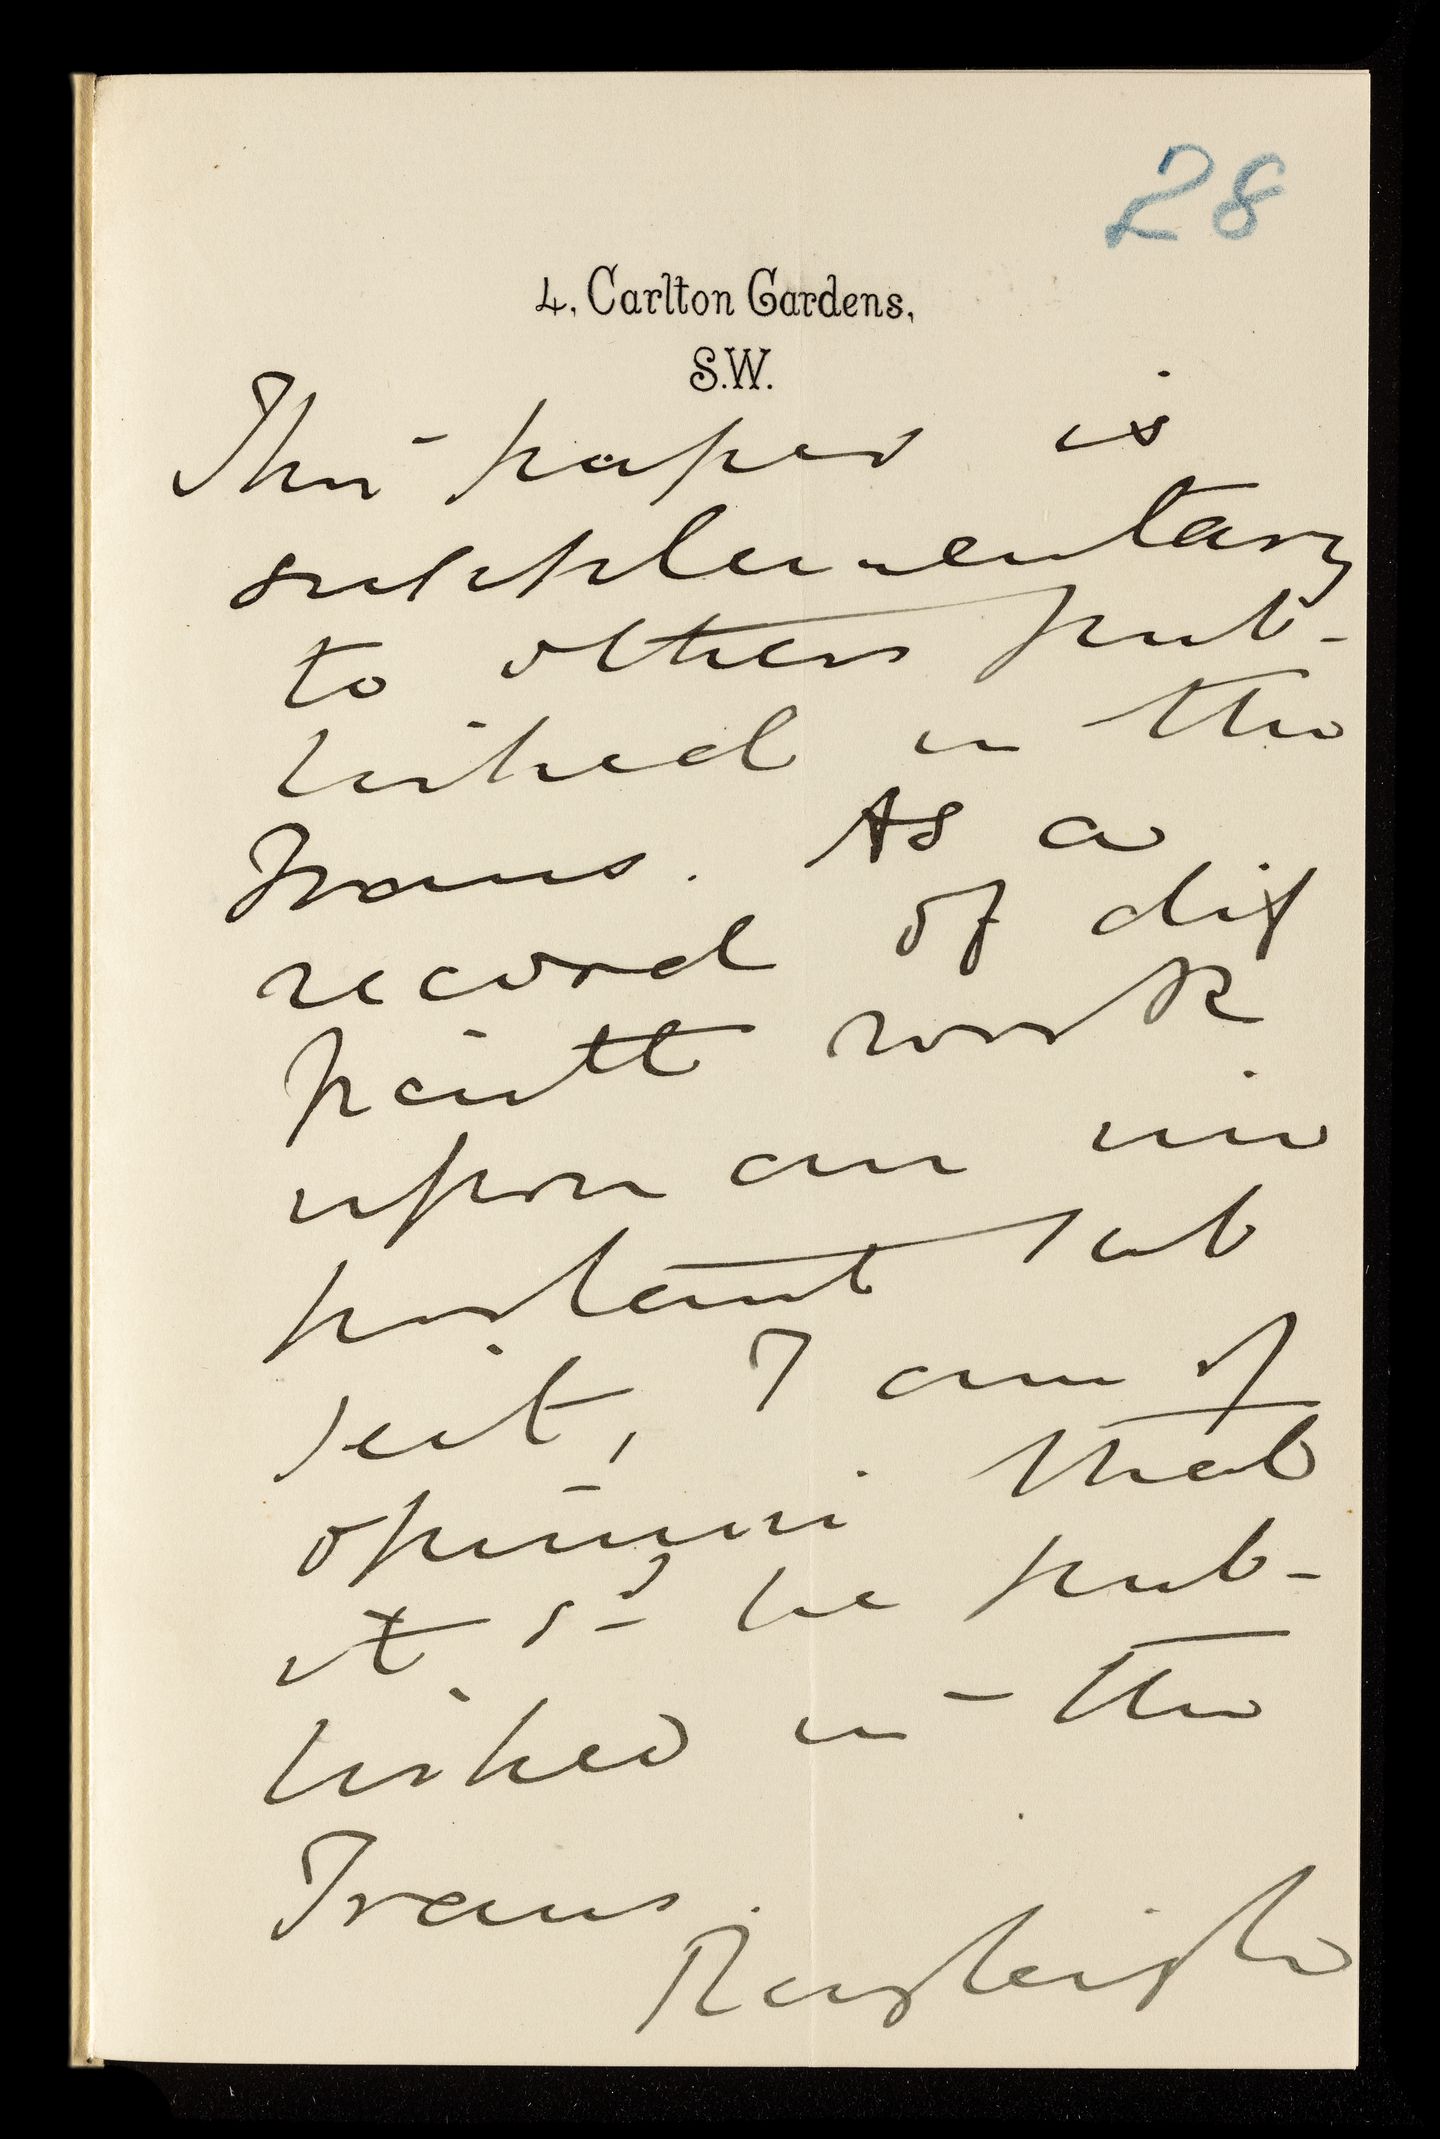 28
4, Carlton Gardens,
S.W.
This paper is
supplementary
to others pub-
lished in the
Trans. As a
record of dif
ficult work
upon an im
portant sub
ject, I am of
opinion that
it shd be pub-
lished in the
Trans.
Rayleigh